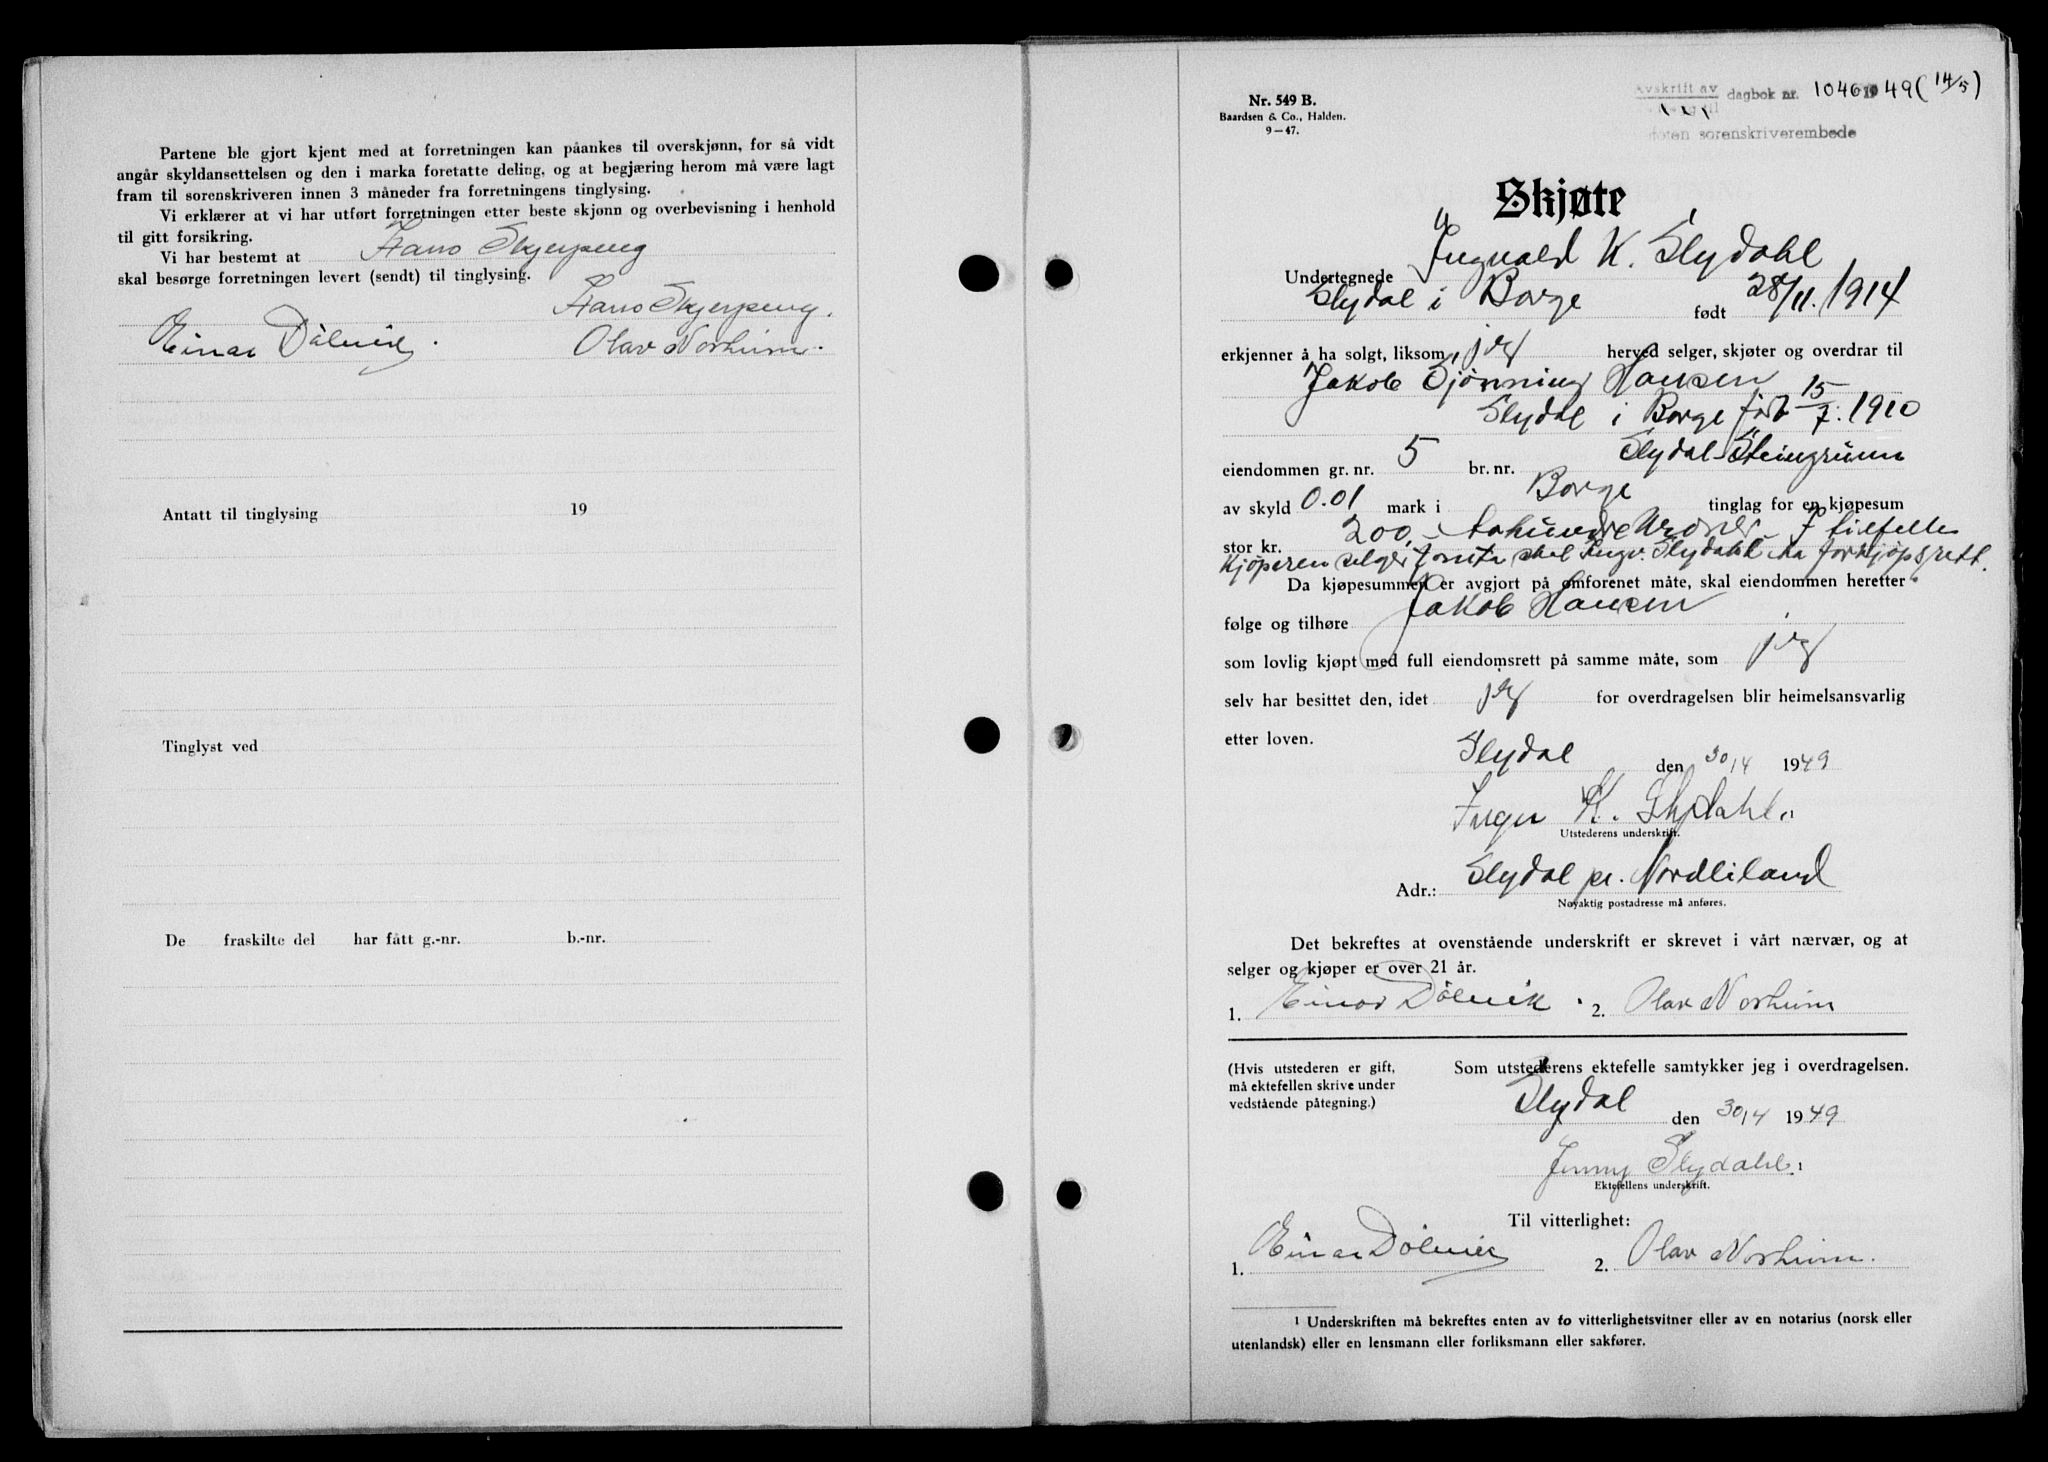 Partene ble gjort kjent med at forretningen kan påankes til overskjønn, for så vidt
angår skyldansettelsen og den i marka foretatte deling, og at begjæring herom må være lagt
fram til sorenskriveren innen 3 måneder fra forretningens tinglysing.
Vi erklærer at vi har utført forretningen etter beste skjønn og overbevisning i henhold
til gitt forsikring.
Vi har bestemt at Hans Skjerpeng
skal besørge forretningen levert (sendt) til tinglysing.
Hans Skjerpeng.
Einar Dölvik. Olav Norheim.
Antatt til tinglysing 19
Tinglyst ved
De fraskilte del har fått g.-nr. b.-nr.
Nr. 549 B.
Baardsen & Co., Halden.
9-47.
Avskrift av dagbok nr. 1046 1949 (14/5)
sorenskriverembede
Skjøte
Undertegnede Ingvald K. Slydahl
Slydal i Borge født 28/11. 1914
erkjenner å ha solgt, liksom jeg herved selger, skjøter og overdrar til
Jakob Gjönning Hansen
Slydal i Borge født 15/7. 1910
eiendommen gr. nr. 5 br. nr. Slydal Steingrunn
av skyld 0.01 mark i Borge tinglag for en kjøpesum
stor kr. 200,- tohundre kroner. I tilfelle
Kjöperen selger tomta skal Ingv. Slydahl ha forkjöpsrett.
Da kjøpesummen er avgjort på omforenet måte, skal eiendommen heretter
følge og tilhøre Jakob Hansen
som lovlig kjøpt med full eiendomsrett på samme måte, som jeg
selv har besittet den, idet jeg for overdragelsen blir heimelsansvarlig
etter loven.
Slydal den 30/4 1949
Ingv. K. Slydahl.¹
Utstederens underskrift.
Adr.: Slydal pr. Nordliland
Nøyaktig postadresse må anføres.
Det bekreftes at ovenstående underskrift er skrevet i vårt nærvær, og at
selger og kjøper er over 21 år.
1. Einar Dölvik. 2. Olav Norheim
(Hvis utstederen er gift, må ektefellen skrive under vedstående påtegning.)
Som utstederens ektefelle samtykker jeg i overdragelsen.
Slydal den 30/4 1949
Jenny Slydahl.¹
Ektefellens underskrift.
Til vitterlighet:
1. Einar Dölvik 2. Olav Norheim.
¹ Underskriften må bekreftes enten av to vitterlighetsvitner eller av en notarius (norsk eller
utenlandsk) eller en lensmann eller forliksmann eller sakfører.